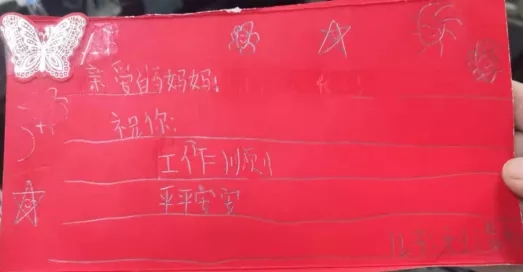 亲爱的妈妈:
祝你:
工作顺利
平平安安